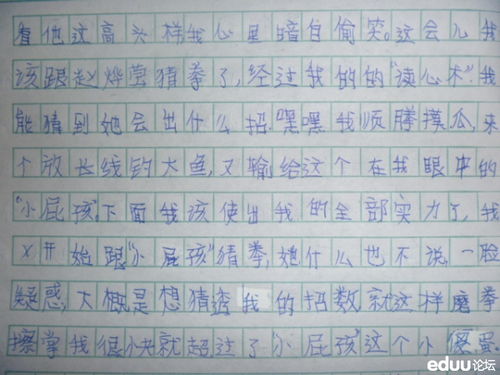 看他这高头样我心里暗自偷笑。这会儿我
该跟赵烨莹猜拳了,经过我的的“读心术”我
能猜到她会出什么招.嘿嘿我顺腾摸瓜,来
个放长线钓大鱼,又输给这个在我眼中的
“小屁孩”下面我该使出我的全部实力了,我
开始跟“小屁孩”猜拳,她什么也不说,一脸
疑惑,大概是想猜透我的招数就这样磨拳
擦掌我很小夬就超过了“小屁孩”这个小
eduu论坛